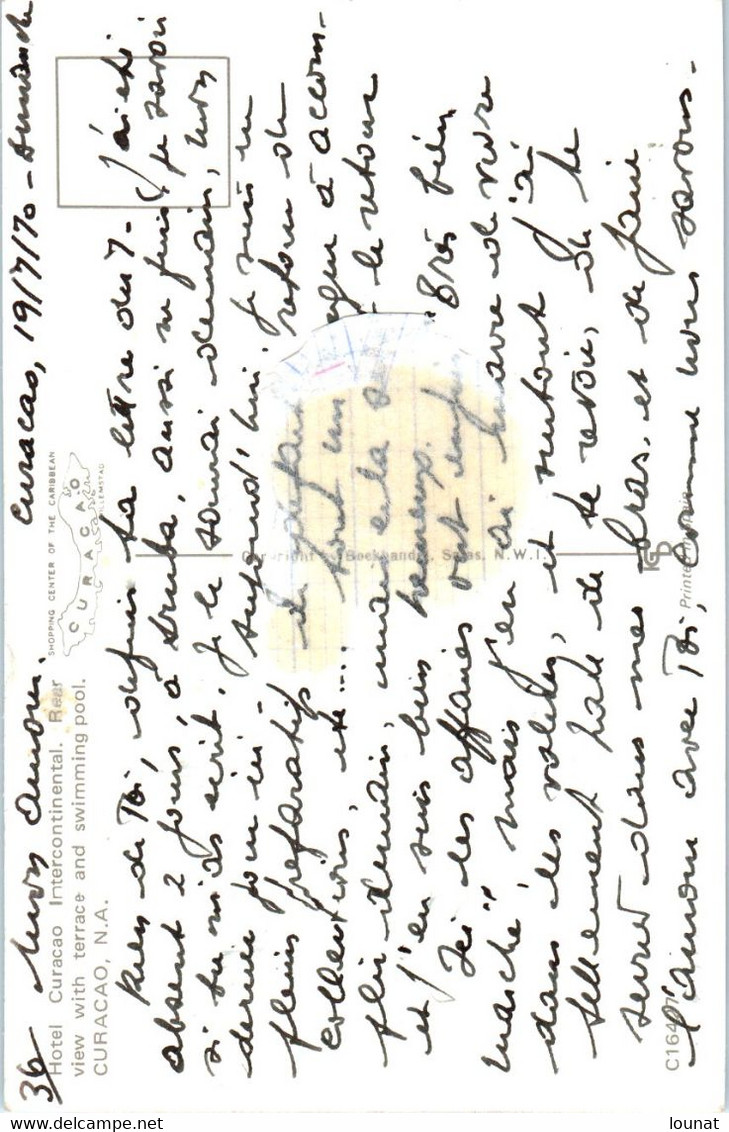 36 Mon amour. Curacao, 19/7/70 - Dimanche
Hotel Curacao Intercontinental. Rear
view with terrace and swimming pool.
CURACAO, N.A.
SHOPPING CENTER OF THE CARIBBEAN
CURACAO
WILLEMSTAD
Rien de Toi, depuis ta lettre du 7 - J'ai été
absent 2 jours, à Aruba, aussi ne puis je savoir
si tu m'as écrit, je le saurai demain, mon
dernier jour ici - Aujourd'hui, je suis en
pleins préparatifs de retour de
collections, etc... sont un à accom-
plir demain, mais le retour
et j'en suis bien heureux.
Ici les affaires ont Très bien
marché, mais j'en ai marre de vivre
dans les valises, et surtout j'ai
tellement hate de te revoir, de te
serrer dans mes bras, et de faire
l'amour avec Toi, comme nous savons -
Copyright by Boekhandel Salas, N.W.I.
C16407
Printed
lounat